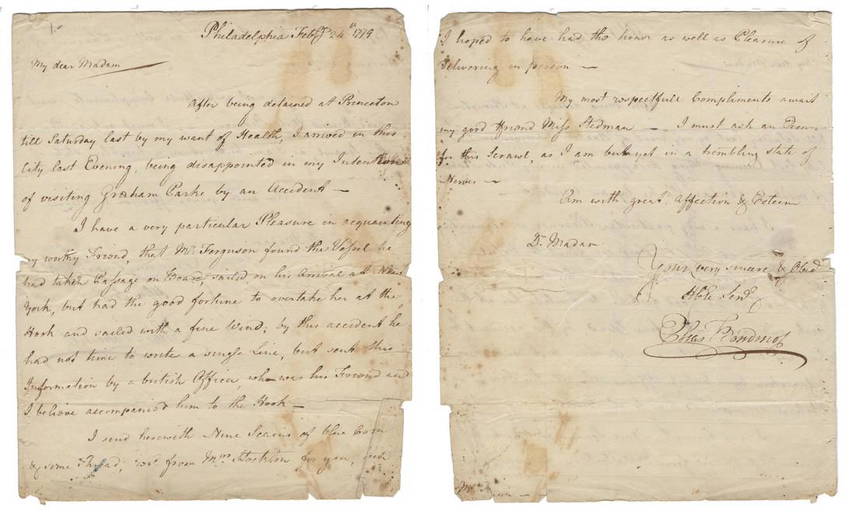 Philadelphia Feby 24th 1779
My dear Madam
After being detained at Princeton
till Saturday last by my want of Health, I arrived in this
City last Evening, being disappointed in my Intentions
of visiting Graham Parke by an Accident —
I have a very particular Pleasure in acquainting
my worthy Friend, that Mr. Ferguson found the Vessel he
had taken Passage on Board, sailed on his Arrival at New
York, but had the good fortune to overtake her at the
Hook and sailed with a fine Wind; by this accident he
had not time to write a single Line, but sent this
Information by a british Officer, who was his Friend and
I believe accompanied him to the Hook —
I send herewith Nine of blue
& some Thread, from Mrs Stockton for you,
I hoped to have had the honor as well as Pleasure of
delivering in person —
My most respectfull Compliments await
my good Friend Miss Stedman — I must ask an
for this Scrawl, as I am but yet in a trembling state of
Nerves —
Am with great Affection & Esteem
Dr. Madam
Your very sincere & Obedt
Hble Servt
Elias Boudinot
Mrs